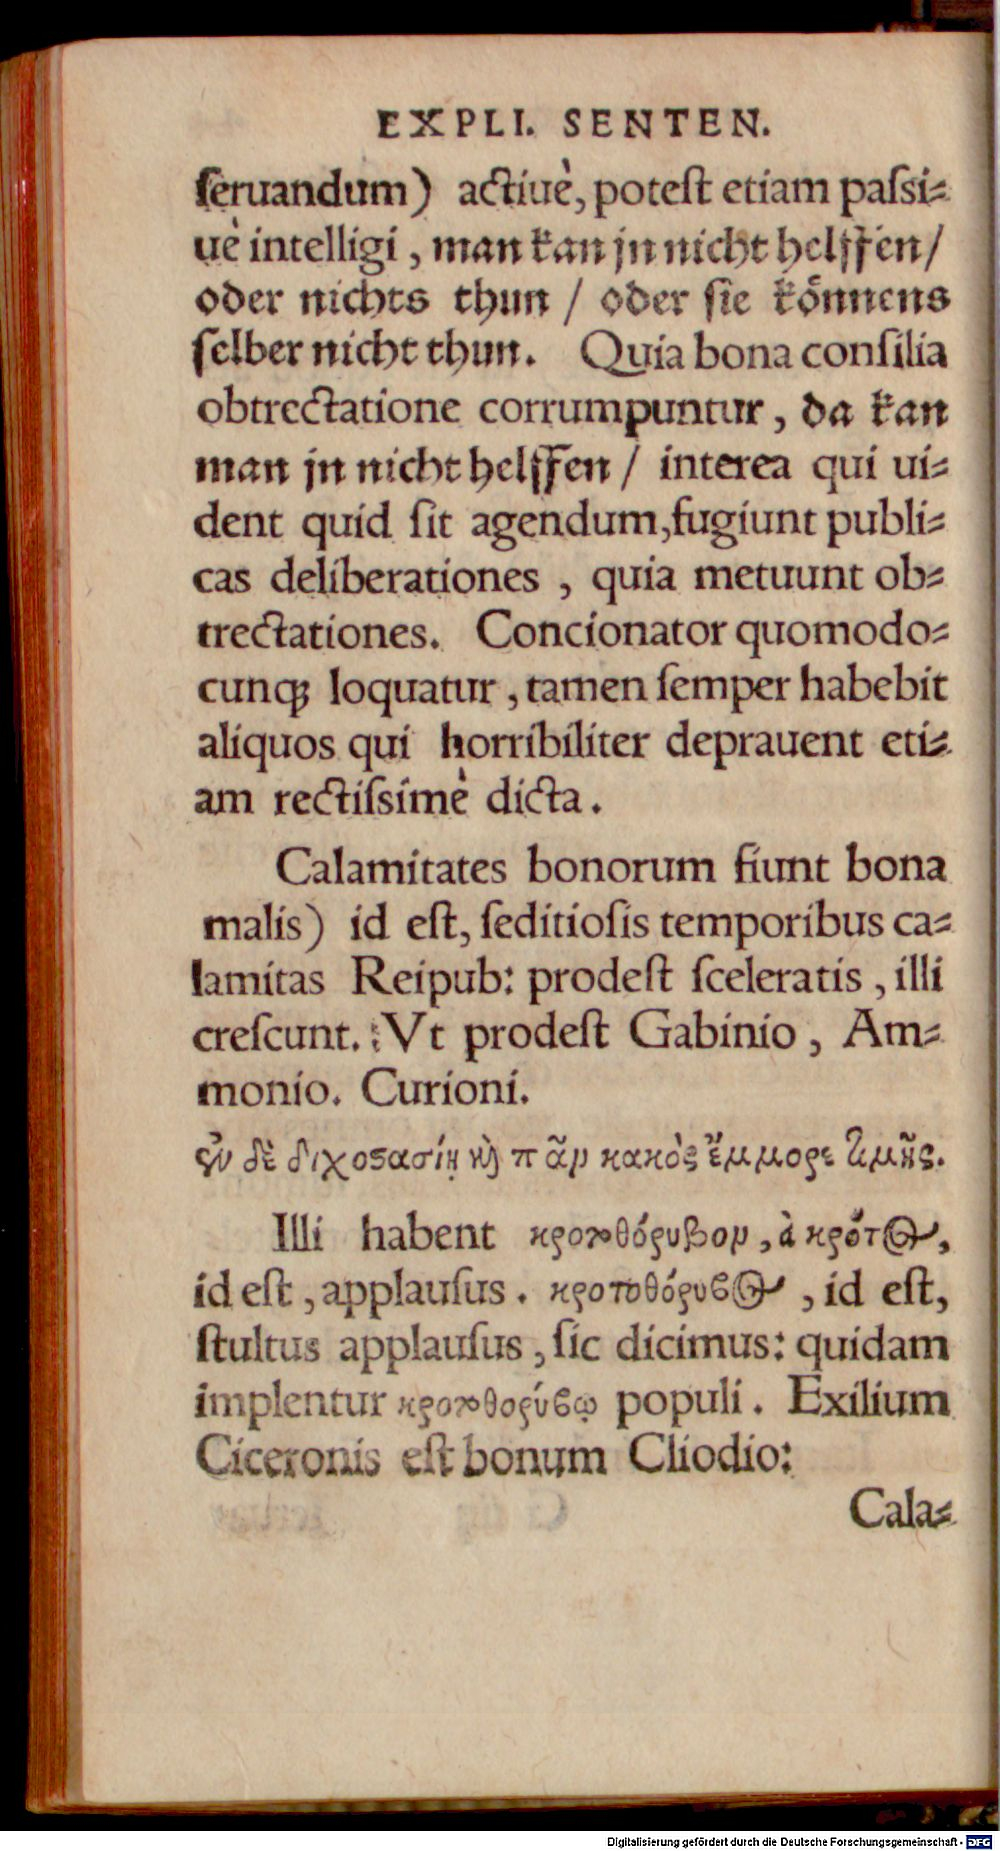 EXPLI. SENTEN.
ſeruandum) actiuè, poteſt etiam paſsi⸗
uè intelligi, man kan jn nicht helffen/
oder nichts thun / oder ſie koͤnnens
ſelber nicht thun. Quia bona conſilia
obtrectatione corrumpuntur, da kan
man jn nicht helffen / interea qui ui⸗
dent quid ſit agendum, fugiunt publi⸗
cas deliberationes, quia metuunt ob⸗
trectationes. Concionator quomodo⸗
cunqꝫ loquatur, tamen ſemper habebit
aliquos qui horribiliter deprauent eti⸗
am rectiſsimè dicta.
Calamitates bonorum fiunt bona
malis) id eſt, ſeditioſis temporibus ca⸗
lamitas Reipub: prodeſt ſceleratis, illi
creſcunt. : Vt prodeſt Gabinio, Am⸗
monio. Curioni.
ἐν δὲ διχοϛασίῃ ϗὶ πᾶν κακὸς ἔμμορε τιμῆς.
Illi habent κροτοθόρυβον, à κρότος,
id eſt, applauſus. κροτοθόρυβος, id eſt,
ſtultus applauſus, ſic dicimus: quidam
implentur κροτοθορύβῳ populi. Exilium
Ciceronis eſt bonum Cliodio:
Cala⸗
Digitalisierung gefördert durch die Deutsche Forschungsgemeinschaft - DFG